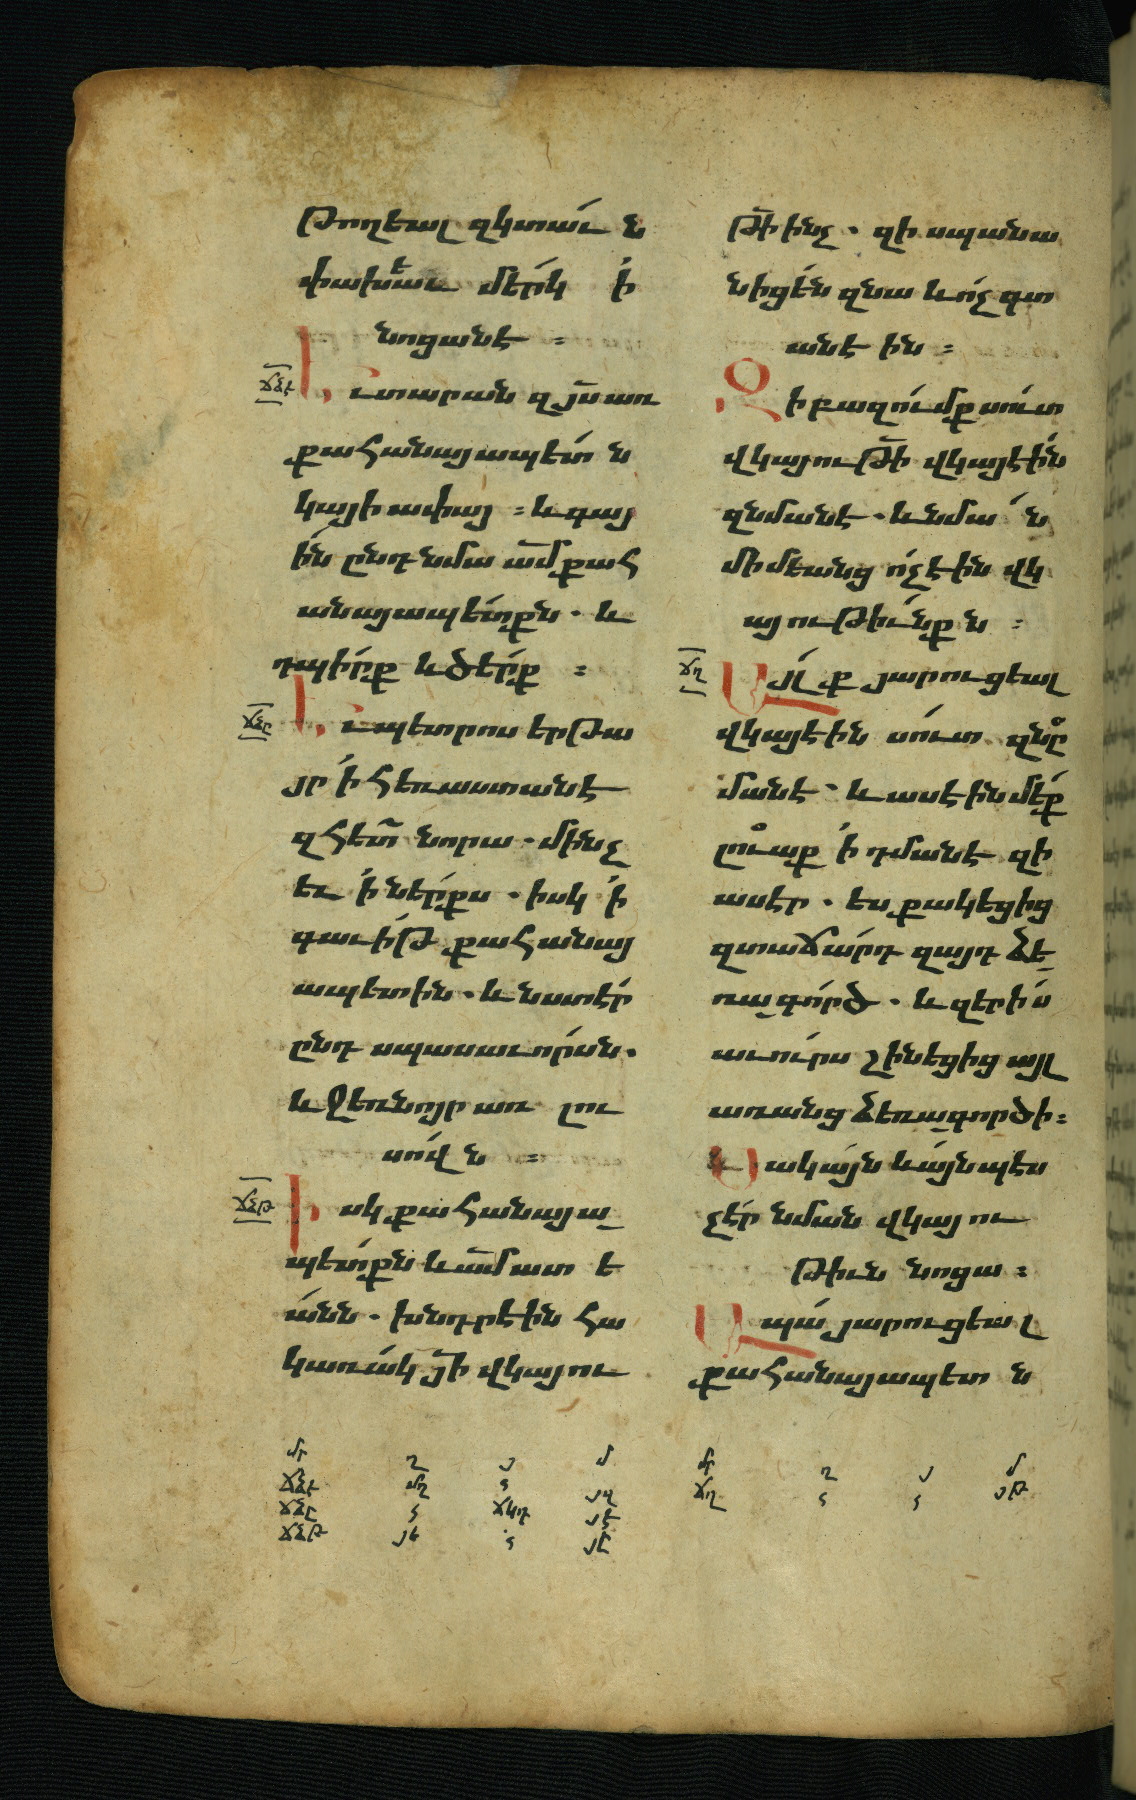 Թողեալ զկտաւն
փախեաւ մերկ ի
նոցանէ ։
ՃՁԷ
Եւ տարան զյս առ
քահանայապետն
կայիափայ ։ և գայ
ին ընդ նմա ամ քահ
անայապետքն · և
դպիրք և ծերք ։
ՃՁԸ
Եւ պետրոս երթա
յր ի հեռաստանէ
զհետ նորա · մինչ
եւ ի ներքս · իսկ ի
գաւիթ քահանայ
ապետին · և նստէր
ընդ սպասաւորսն ·
և ջեռնոյր առ լու
սովն ։
ՃՁԹ
Իսկ քահանայա
պետքն և ամ ատե
անն · խնդրէին հա
կառակ յի վկայու
Թի ինչ · զի սպանա
նիցեն զնա և ոչ գտ
անէին ։
Զի բազումք սուտ
վկայութի վկայէին
զնմանէ · և նման
միմեանց ոչ էին վկ
այութիւնքն ։
ՃՂ
Այլք յարուցեալ
վկայէին սուտ զնը
մանէ · և ասէին մեք
լուաք ի դմանէ զի
ասէր · ես քակեցից
զտաճարդ զայդ ձե
ռագործ · և զերիս
աւուրս շինեցից այլ
առանց ձեռագործի ։
Սակայն և այնպէս
չէր նման վկայու
թիւն նոցա ։
Ապա յարուցեալ
քահանայապետն
մր ղ յ մ
ՃՁԷ մղ ՃՁԸ ՃԿԴ ՃՁԹ
մր ղ յ մ
ՃՂ յթ